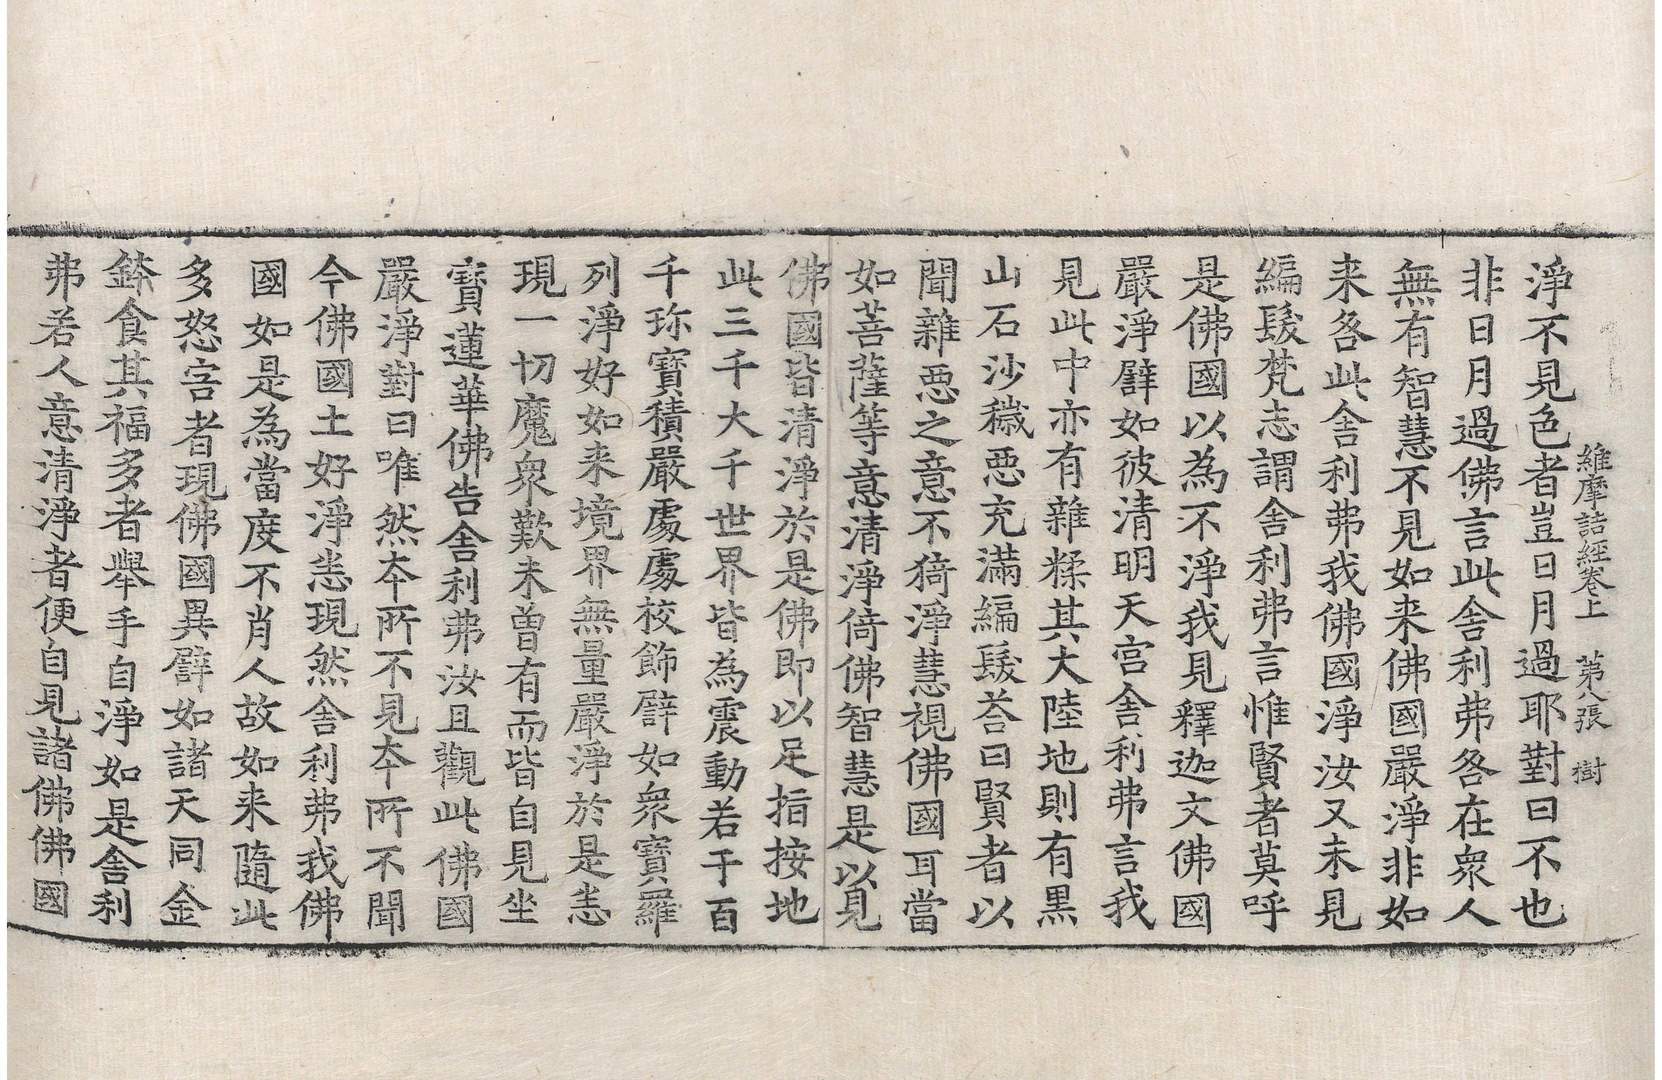 維摩詰經卷上 第八張 樹
淨不見色者豈日月過耶對曰不也
非日月過佛言此舍利弗咎在衆人
無有智慧不見如来佛國嚴淨非如
来咎此舍利弗我佛國淨汝又未見
編髮梵志謂舍利弗言惟賢者莫呼
是佛國以為不淨我見釋迦文佛國
嚴淨譬如彼清明天宮舍利弗言我
見此中亦有雜糅其大陸地則有黒
山石沙穢惡充滿編髮荅曰賢者以
聞雜惡之意不猗淨慧視佛國耳當
如菩薩等意清淨倚佛智慧是以見
佛國皆清淨於是佛即以足指按地
此三千大千世界皆為震動若干百
千珎寶積嚴處處校飾譬如衆寶羅
列淨好如来境界無量嚴淨於是悉
現一切魔衆歎未曽有而皆自見坐
寶蓮華佛告舍利弗汝且觀此佛國
嚴淨對曰唯然夲所不見夲所不聞
今佛國土好淨悉現然舍利弗我佛
國如是為當度不肖人故如来隨此
多怒害者現佛國異譬如諸天同金
鉢食其福多者舉手自淨如是舍利
弗若人意清淨者便自見諸佛佛國